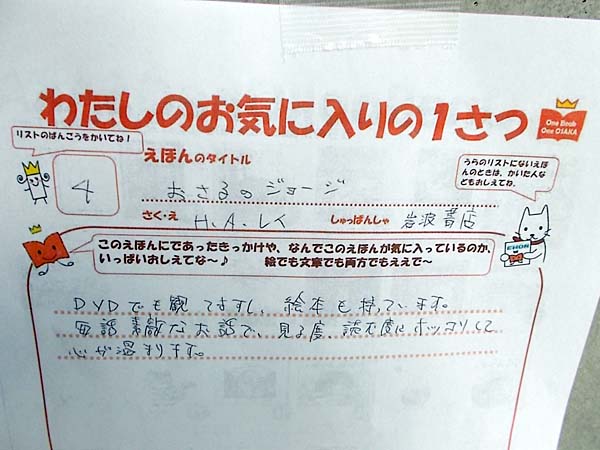 わたしのお気に入りの1さつ
One Book
One OSAKA
リストのばんごうをかいてね！
えほんのタイトル
4
おさるのジョージ
うらのリストにないえほ
んのときは、かいた人な
どもおしえてね。
さく・え
H.A.レイ
しゅっぱんしゃ
岩波書店
EHON
このえほんにであったきっかけや、なんでこのえほんが気に入っているのか、
いっぱいおしえてな～♪ 絵でも文章でも両方でもええで～
DVDでも観てますし、絵本も持っています。
毎話素敵なお話で、見る度、読む度にホッコリして
心が温まります。